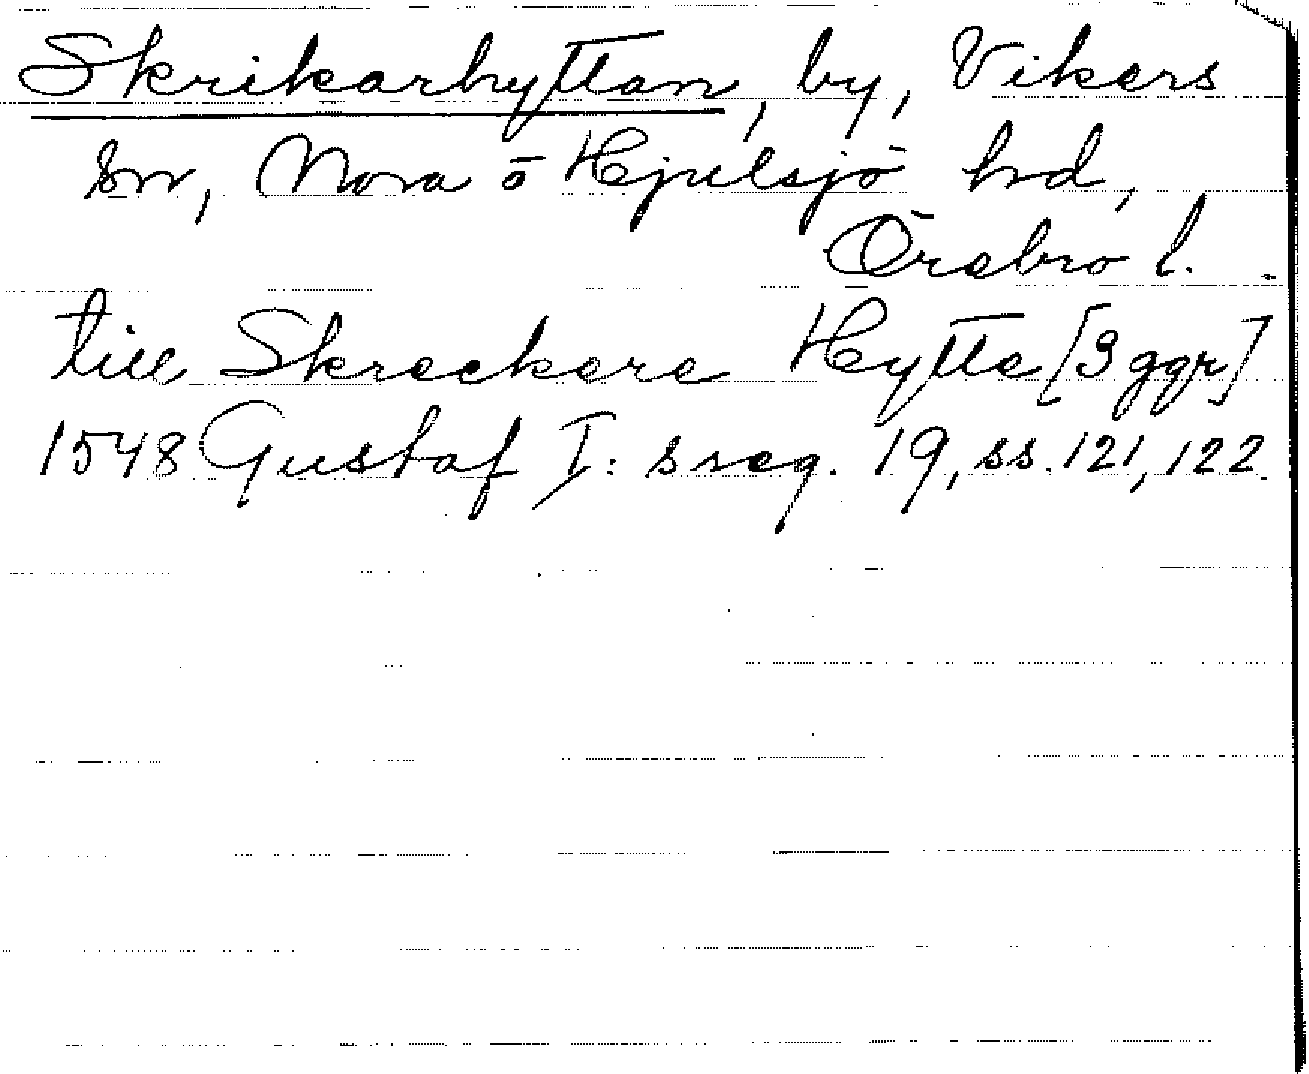 Skrikarhyttan, by, Vikers
sn, Nora o Hjulsjö hrd,
Örebro l.
till Skreckere Hytte [3 ggr]
1548 Gustaf I: s reg. 19, ss. 121, 122.